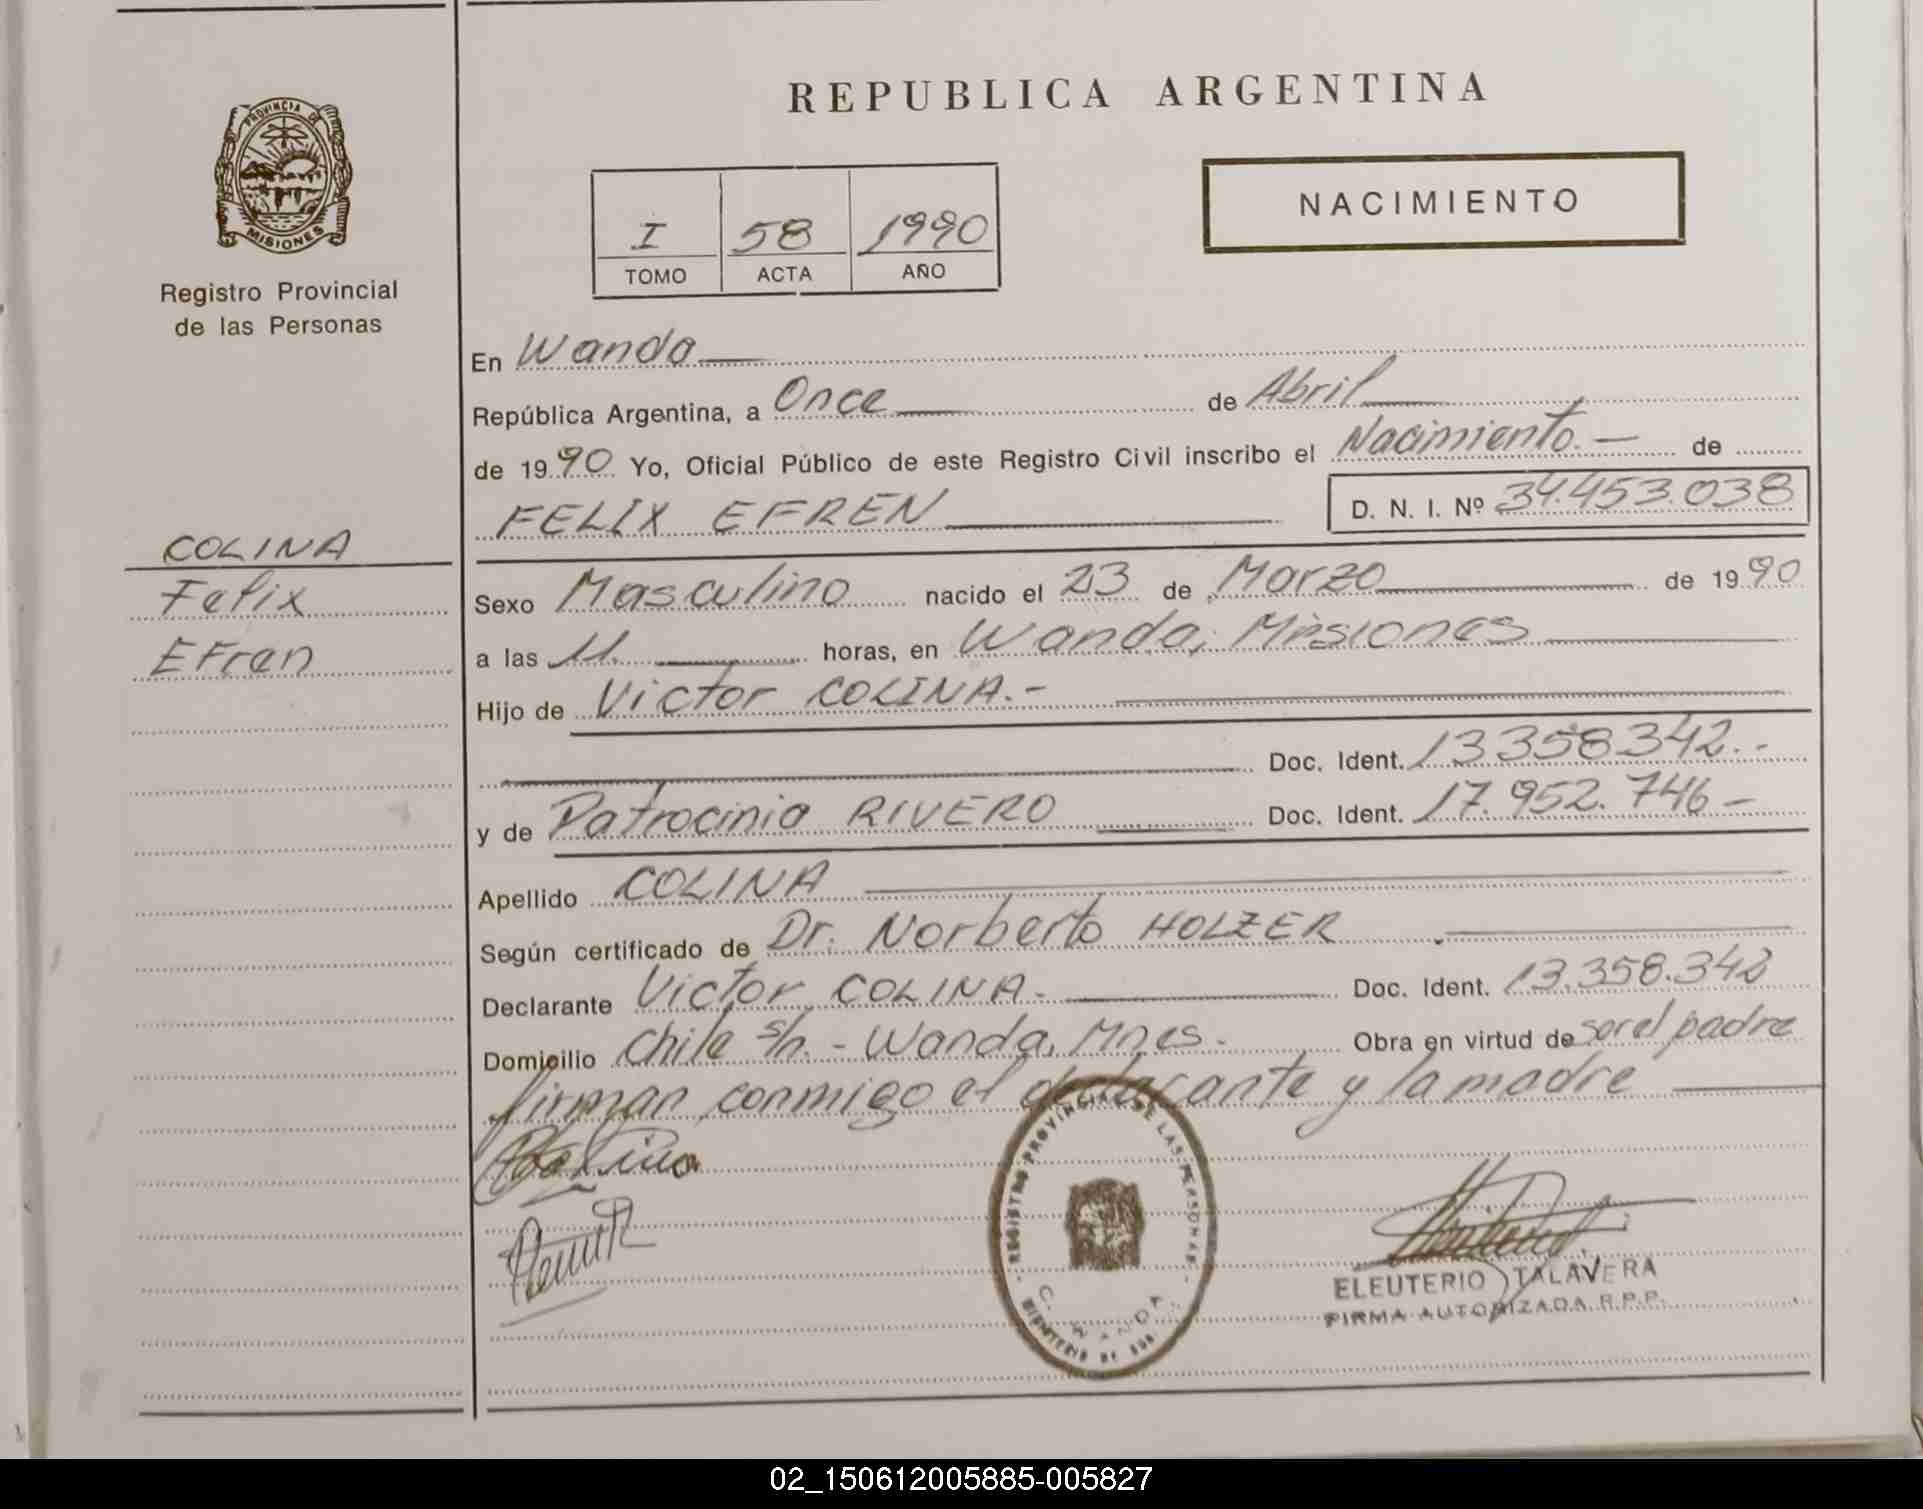 REPUBLICA ARGENTINA
PROVINCIA DE
MISIONES
Registro Provincial
de las Personas
NACIMIENTO
I 58 1990
TOMO ACTA AÑO
En Wanda
República Argentina, a Once de Abril
de 1990 Yo, Oficial Público de este Registro Civil inscribo el Nacimiento.- de
FELIX EFREN D. N. I. Nº 34.453.038
COLINA
Felix
Efren
Sexo Masculino nacido el 23 de Marzo de 1990
a las 11. horas, en Wanda, Misiones
Hijo de Victor COLINA.-
Doc. Ident. 13358342.-
y de Patrocinia RIVERO Doc. Ident. 17.952.746-
Apellido COLINA
Según certificado de Dr. Norberto HOLZER
Declarante Victor COLINA.- Doc. Ident. 13.358.342
Domicilio Chile s/n.- Wanda, Mnes.- Obra en virtud de ser el padre
firman conmigo el declarante y la madre
REGISTRO PROVINCIAL DE LAS PERSONAS
WANDA
ELEUTERIO TALAVERA
FIRMA AUTORIZADA R.P.P.
02_150612005885-005827